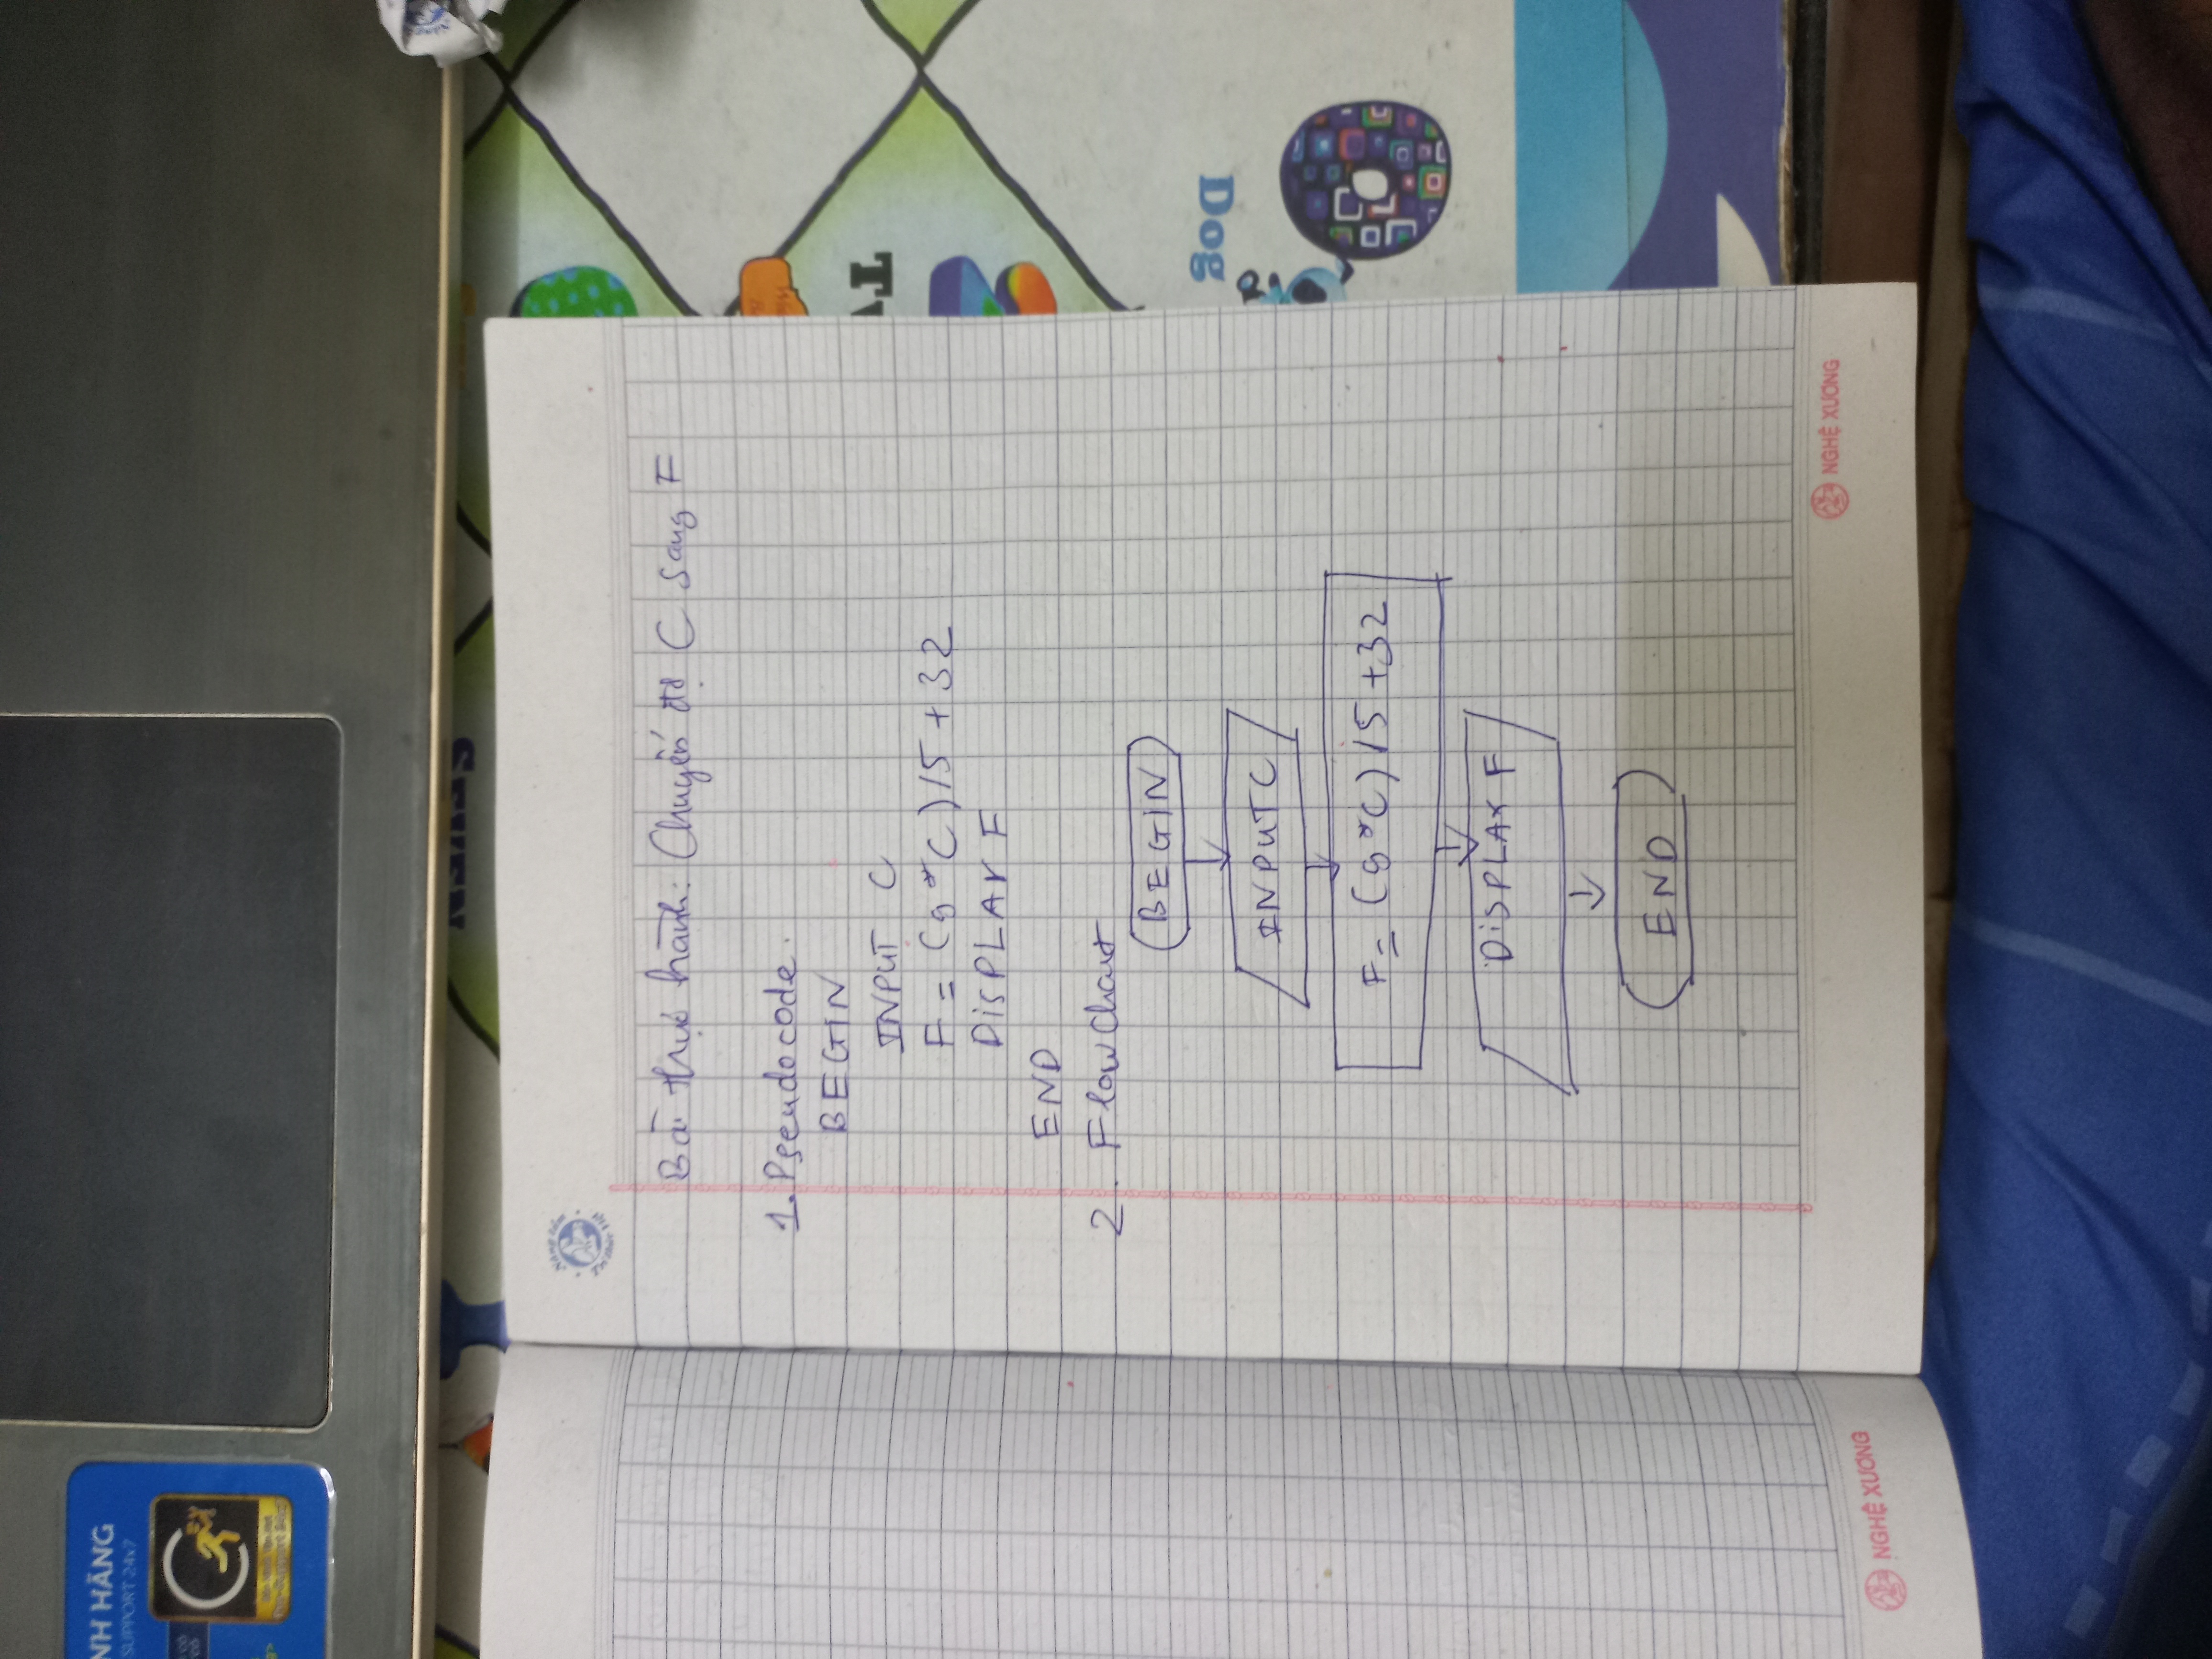 NH HÃNG
SUPPORT 24x7
SEVEN
Nâng tầm
Tri thức Việt
Bài thực hành: Chuyển độ C sang F
1. Pseudocode.
BEGIN
INPUT C
F = (9*C)/5+32
DiSPLAY F
END
2. FlowChart
BEGIN
INPUT C
F = (9*C)/5+32
DiSPLAY F
END
Dog
NGHỆ XƯƠNG
NGHỆ XƯƠNG